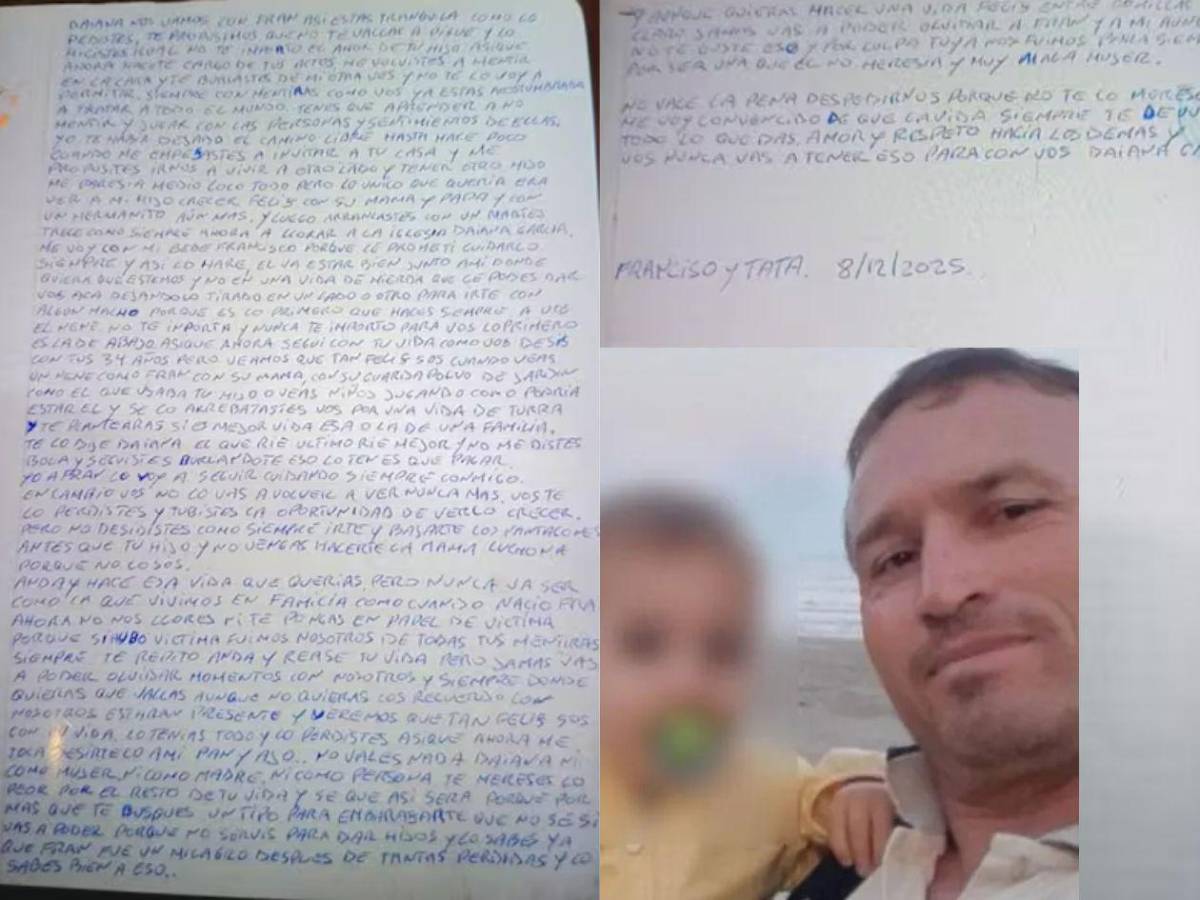 DAIANA NOS VAMOS CON FRAN ASI ESTAS TRANQUILA COMO LO
PEDISTES, TE PROPUSIMOS QUE NO TE VALLAS A PIGUE Y LO
HICISTES IGUAL NO TE IMPORTO EL AMOR DE TU HIJO ASIQUE
AHORA HACETE CARGO DE TUS ACTOS ME VOLVISTES A MENTIR
EN LA CARA Y TE BURLASTES DE MI OTRA VOS Y NO TE LO VOY A
PERMITIR, SIEMPRE CON MENTIRAS COMO VOS YA ESTAS ACOSTUMBRADA
A TRATAR A TODO EL MUNDO. TENES QUE APRENDER A NO
MENTIR Y JUGAR CON LAS PERSONAS Y SENTIMIENTOS DE ELLAS.
YO TE HABIA DEJADO EL CAMINO LIBRE HASTA HACE POCO
CUANDO ME EMPESASTES A INVITAR A TU CASA Y ME
PROPUSITES IRNOS A VIVIR A OTRO LADO Y TENER OTRO HIJO
ME PARESIA MEDIO LOCO TODO PERO LO UNICO QUE QUERIA ERA
VER A MI HIJO CRECER FELIS CON SU MAMA Y PAPA Y CON
UN HERMANITO AÚN MAS. Y LUEGO ARRANCASTES CON UN MARTES
TRECE COMO SIEMPRE AHORA A LLORAR A LA IGLESIA DAIANA GARCIA.
ME VOY CON MI BEBE FRANCISCO PORQUE LE PROMETI CUIDARLO
SIEMPRE Y ASI LO HARE, EL VA ESTAR BIEN JUNTO AMI DONDE
QUIERA QUE ESTEMOS Y NO EN UNA VIDA DE MIERDA QUE LE PODES DAR
VOS ACA DEJANDOLO TIRADO EN UN LADO U OTRO PARA IRTE CON
ALGUN MACHO PORQUE ES LO PRIMERO QUE HACES SIEMPRE A VOS
EL NENE NO TE INPORTA Y NUNCA TE IMPORTO PARA VOS LO PRIMERO
ES LA DE ABAJO ASIQUE AHORA SEGUI CON TU VIDA COMO VOS DESIS
CON TUS 34 AÑOS PERO VEAMOS QUE TAN FELIS SOS CUANDO VEAS
UN NENE COMO FRAN CON SU MAMA, CON SU GUARDAPOLVO DE JARDIN
COMO EL QUE USABA TU HIJO O VEAS NIÑOS JUGANDO COMO PODRIA
ESTAR EL Y SE LO ARREBATASTES VOS POR UNA VIDA DE TURRA
Y TE PLANTEARAS SI ES MEJOR VIDA ESA O LA DE UNA FAMILIA.
TE LO DIJE DAIANA EL QUE RIE ULTIMO RIE MEJOR Y NO ME DISTES
BOLA Y SEGUISTES BURLANDOTE ESO LO TENES QUE PAGAR.
YO A FRAN LO VOY A SEGUIR CUIDANDO SIEMPRE CONMIGO.
EN CAMBIO VOS NO LO VAS A VOLVER A VER NUNCA MAS. VOS TE
LO PERDISTES Y TUBISTES LA OPORTUNIDAD DE VERLO CRECER.
PERO NO DESIDISTES COMO SIEMPRE IRTE Y BAJARTE LOS PANTALONES
ANTES QUE TU HIJO Y NO VENGAS HACERTE LA MAMA LUCHONA
PORQUE NO LO SOS.
ANDA Y HACE ESA VIDA QUE QUERIAS, PERO NUNCA VA SER
COMO LA QUE VIVIMOS EN FAMILIA COMO CUANDO NACIO FRA
AHORA NO NOS LLORES NI TE PONGAS EN PAPEL DE VICTIMA
PORQUE SI HUBO VICTIMA FUIMOS NOSOTROS DE TODAS TUS MENTIRAS
SIEMPRE TE REPITO ANDA Y REASE TU VIDA PERO JAMAS VAS
A PODER OLVIDAR MOMENTOS CON NOSOTROS Y SIEMPRE DONDE
QUIERAS QUE VALLAS AUNQUE NO QUIERAS LOS RECUERDO CON
NOSOTROS ESTARAN PRESENTE Y VEREMOS QUE TAN FELIS SOS
CON TU VIDA. LO TENIAS TODO Y LO PERDISTES ASIQUE AHORA ME
TOCA DESIRTELO AMI PAN Y AJO.. NO VALES NADA DAIANA NI
COMO MUJER, NI COMO MADRE, NI COMO PERSONA TE MERESES LO
PEOR POR EL RESTO DE TU VIDA Y SE QUE ASI SERA PORQUE POR
MAS QUE TE BUSQUES UN TIPO PARA EMBARASARTE QUE NO SE SI
VAS A PODER PORQUE NO SERVIS PARA DAR HIJOS Y LO SABES YA
QUE FRAN FUE UN MILAGRO DESPUES DE TANTAS PERDIDAS Y LO
SABES BIEN A ESO..
Y AUNQUE QUIERAS HACER UNA VIDA FELIS ENTRE COMILLAS
CLARO JAMAS VAS A PODER OLVIDAR A FRAN Y A MI AUN
NO TE GUSTE ESO Y POR CULPA TUYA NOS FUIMOS PARA SIEM
POR SER UNA QUE EL NO MERESIA Y MUY MALA MUJER.
NO VALE LA PENA DESPEDIRNOS PORQUE NO TE LO MERESE
ME VOY CONVENCIDO DE QUE LA VIDA SIEMPRE TE DEVU
TODO LO QUE DAS, AMOR Y RESPETO HACIA LOS DEMAS Y
VOS NUNCA VAS A TENER ESO PARA CON VOS DAIANA GA
FRANCISO Y TATA. 8/12/2025.